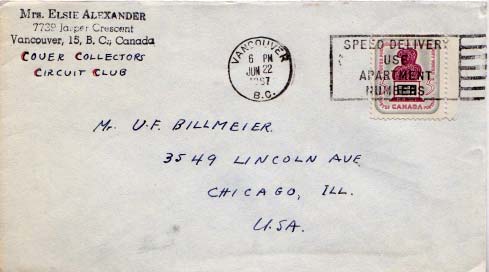 Mrs. Elsie Alexander
7739 Jasper Crescent
Vancouver, 15, B. C., Canada
COVER COLLECTORS
CIRCUIT CLUB
VANCOUVER
6 PM
JUN 22
B.C.
SPEED DELIVERY
USE
APARTMENT
NUMBERS
CANADA
Mr. U.F. BILLMEIER
3549 LINCOLN AVE
CHICAGO, ILL.
U.S.A.